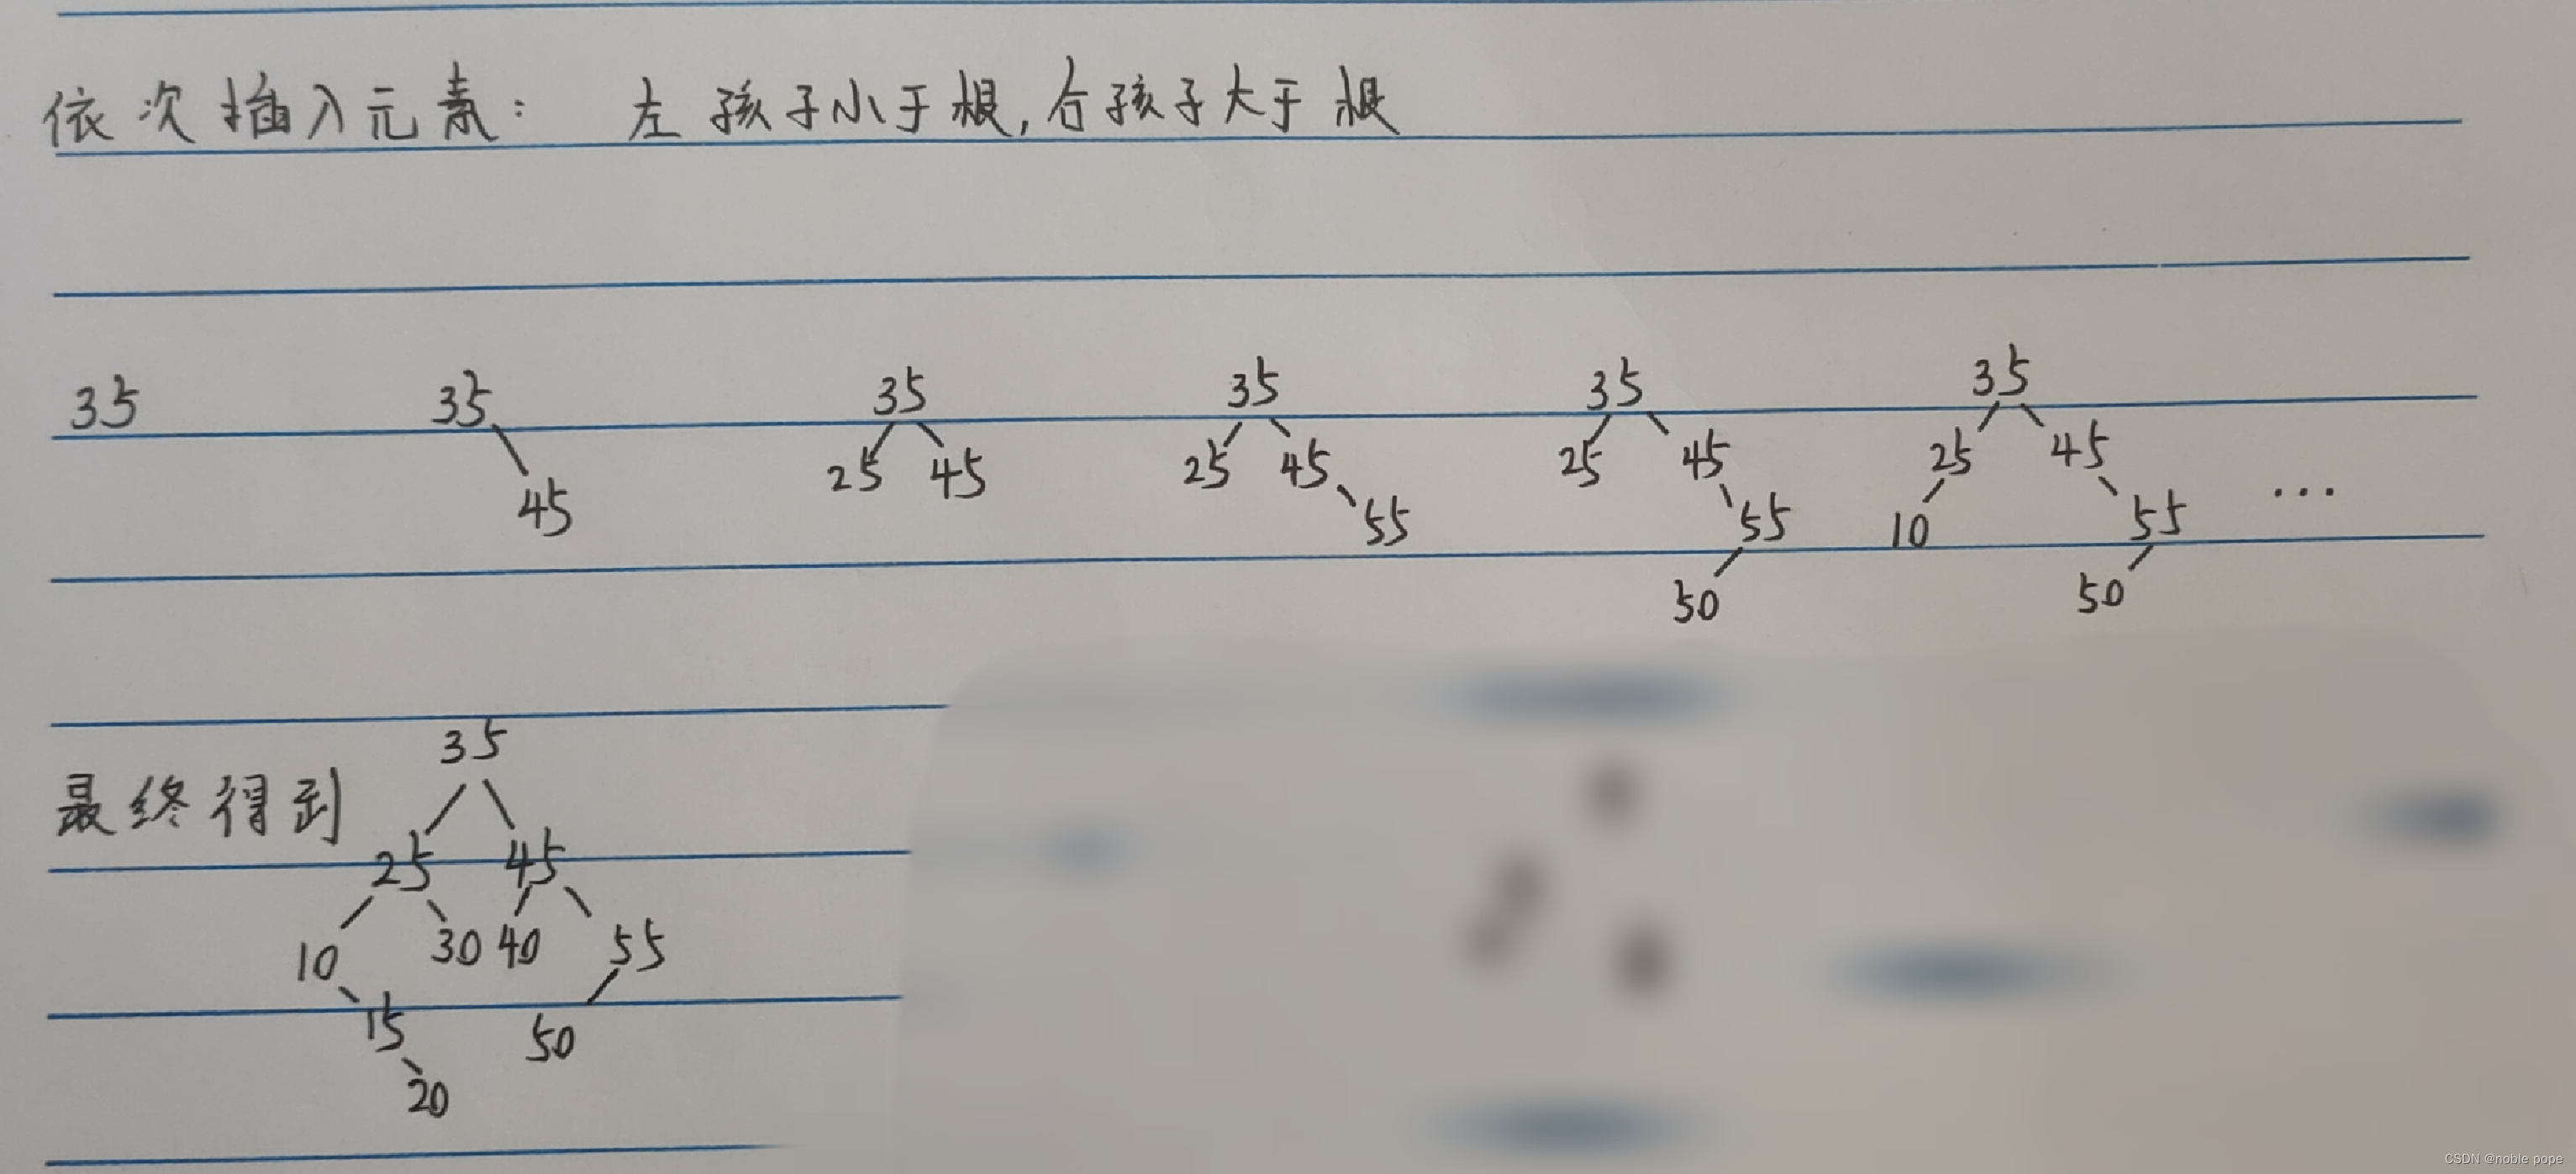 依次插入元素： 左孩子小于根，右孩子大于根
35 35 35 35 35 35
25 45 25 45 25 45 25 45
45 55 55 10 55 ...
50 50
35
最终得到
25 45
10 30 40 55
15 50
20
CSDN @noble pope